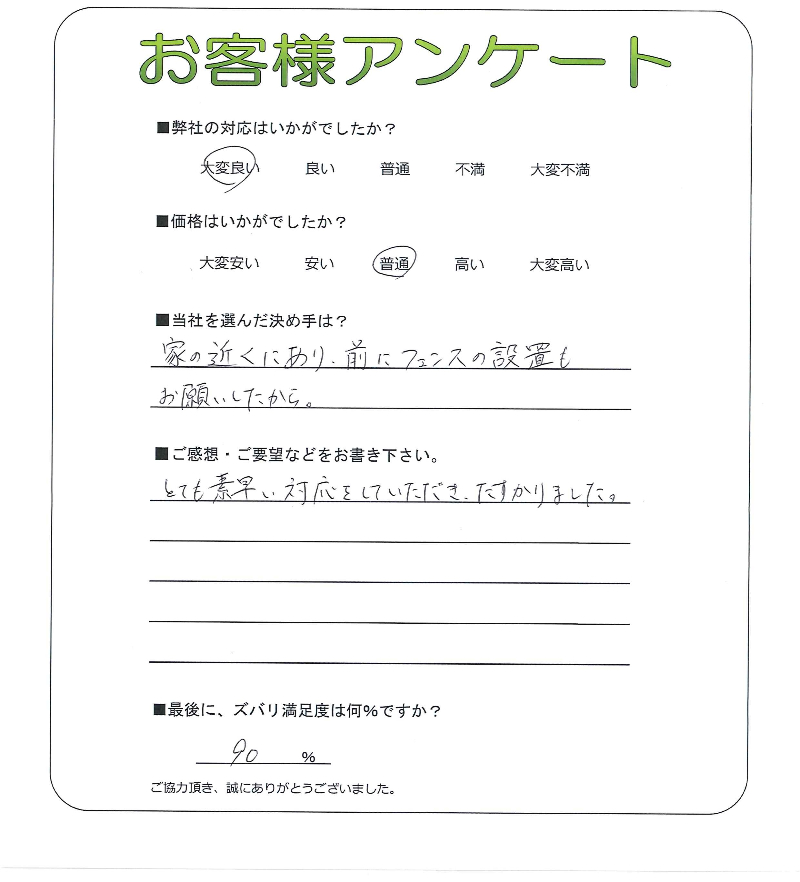 お客様アンケート
■弊社の対応はいかがでしたか？
大変良い 良い 普通 不満 大変不満
■価格はいかがでしたか？
大変安い 安い 普通 高い 大変高い
■当社を選んだ決め手は？
家の近くにあり、前にフェンスの設置も
お願いしたから。
■ご感想・ご要望などをお書き下さい。
とても素早い対応をしていただき、たすかりました。
■最後に、ズバリ満足度は何%ですか？
90 %
ご協力頂き、誠にありがとうございました。